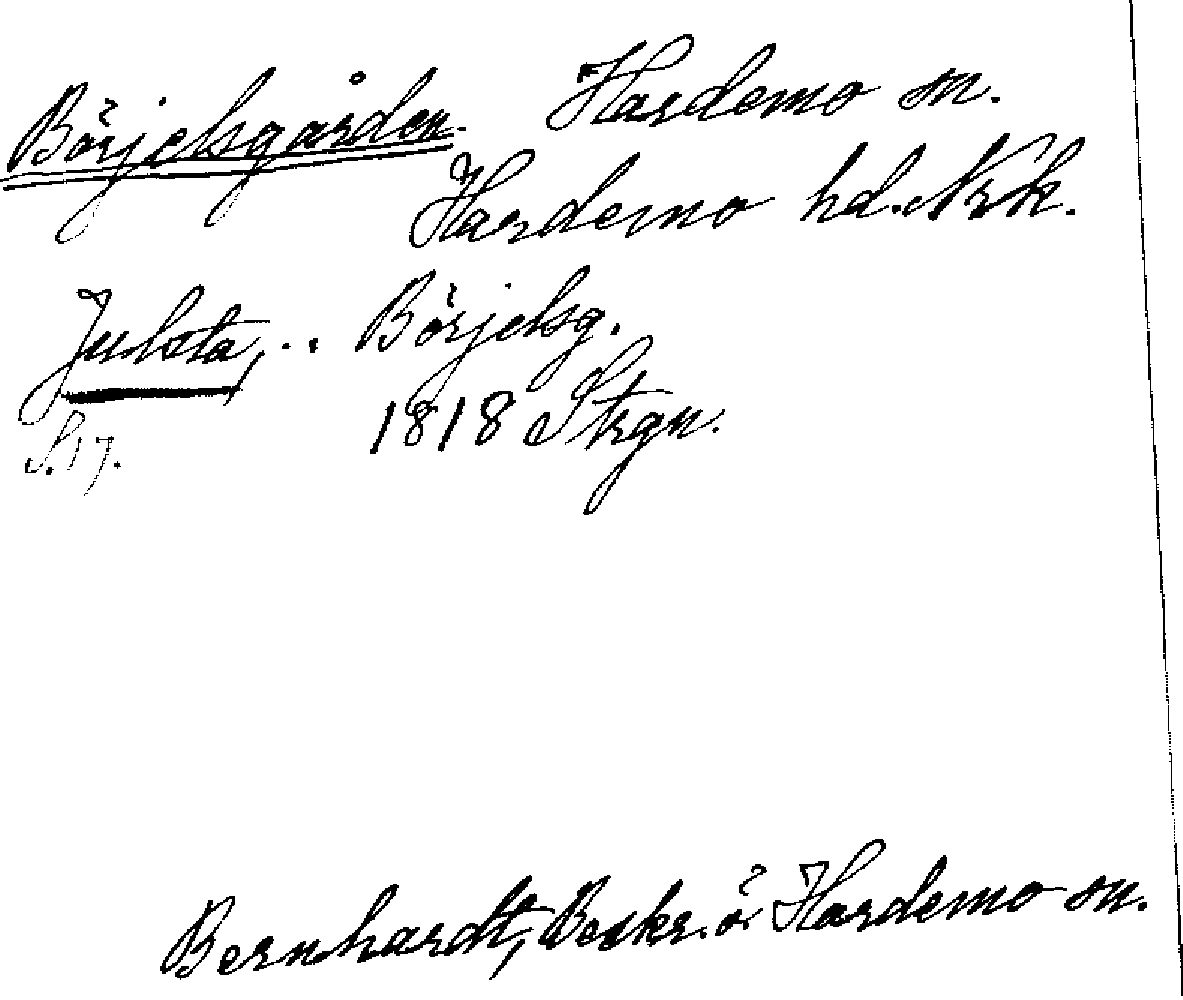 Börjelsgården. Hardemo sn.
Hardemo hd. Nrk.
Julsta, .. Börjelsg.
S. 17. 1818 Strgn.
Bernhardt, Beskr. ö. Hardemo sn.